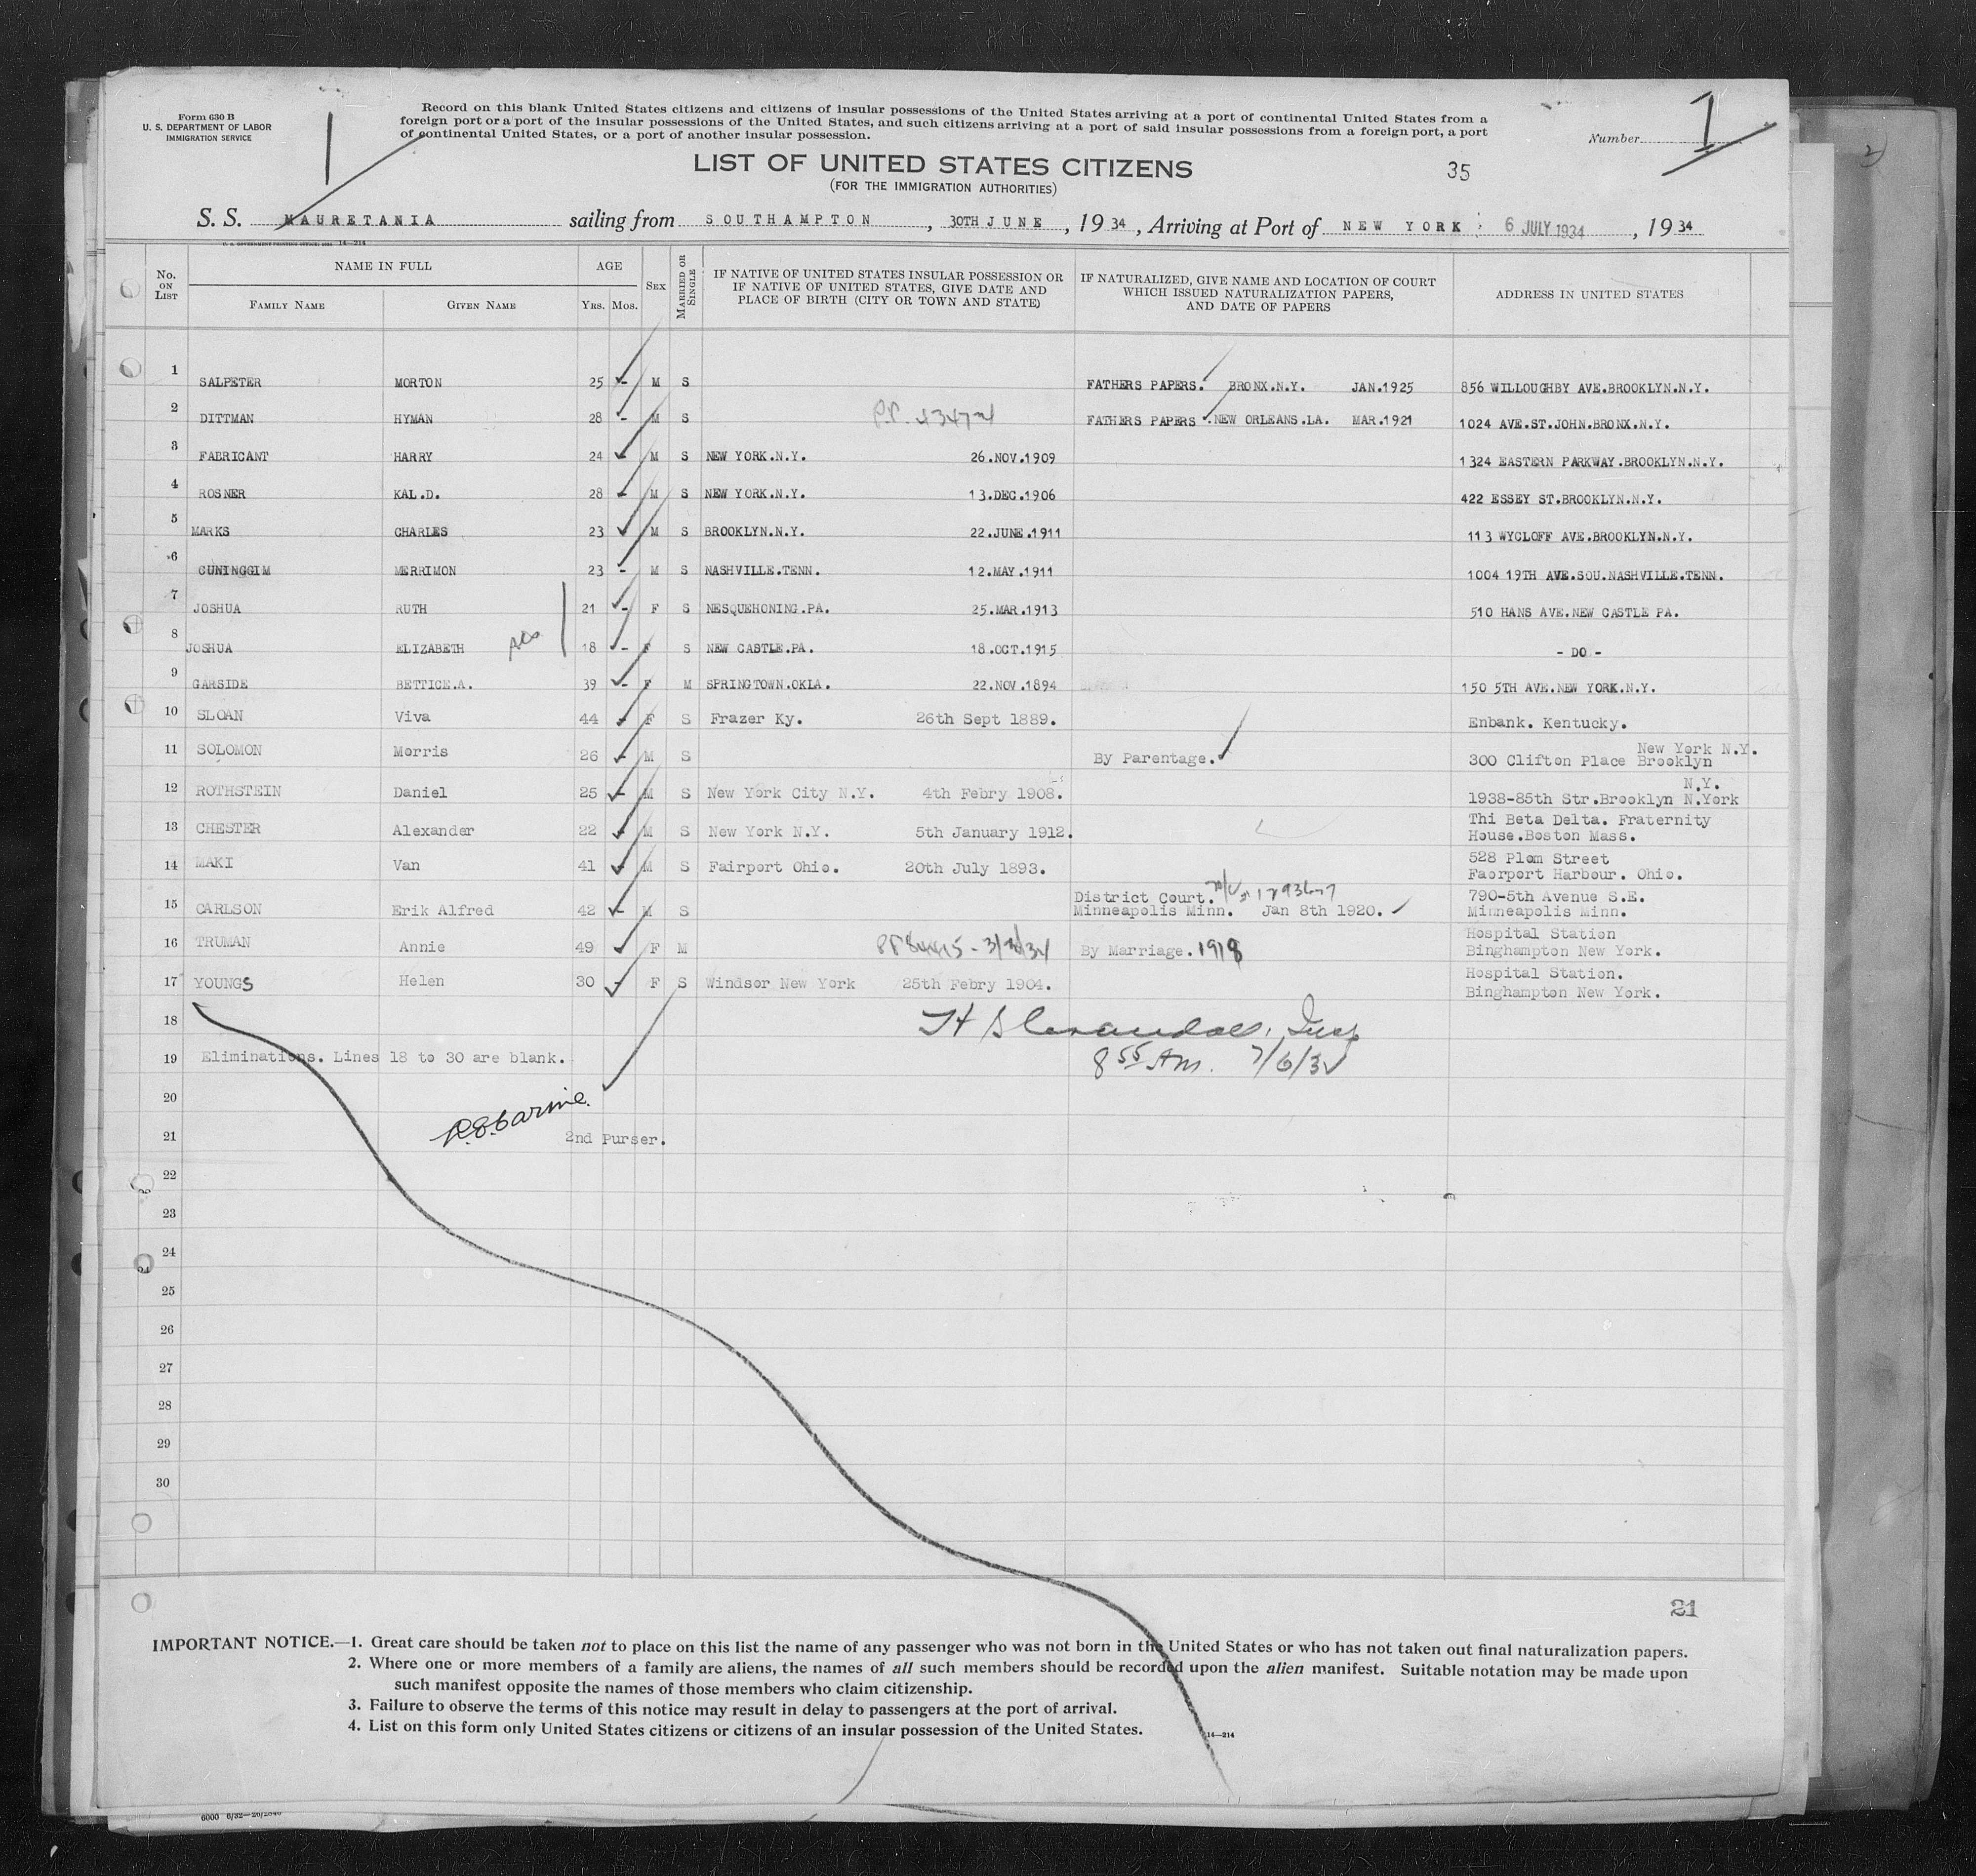 Form 630 B
U. S. DEPARTMENT OF LABOR
IMMIGRATION SERVICE
1
Record on this blank United States citizens and citizens of insular possessions of the United States arriving at a port of continental United States from a
foreign port or a port of the insular possessions of the United States, and such citizens arriving at a port of said insular possessions from a foreign port, a port
of continental United States, or a port of another insular possession.
Number 1
LIST OF UNITED STATES CITIZENS
(FOR THE IMMIGRATION AUTHORITIES)
35
S. S. MAURETANIA sailing from SOUTHAMPTON, 30TH JUNE, 1934, Arriving at Port of NEW YORK 6 JULY 1934, 1934
14—214
No. ON LIST
NAME IN FULL
FAMILY NAME GIVEN NAME
AGE
Yrs. Mos.
SEX
MARRIED OR SINGLE
IF NATIVE OF UNITED STATES INSULAR POSSESSION OR
IF NATIVE OF UNITED STATES, GIVE DATE AND
PLACE OF BIRTH (CITY OR TOWN AND STATE)
IF NATURALIZED, GIVE NAME AND LOCATION OF COURT
WHICH ISSUED NATURALIZATION PAPERS,
AND DATE OF PAPERS
ADDRESS IN UNITED STATES
1 SALPETER MORTON 25 - M S FATHERS PAPERS. BRONX.N.Y. JAN.1925 856 WILLOUGHBY AVE.BROOKLYN.N.Y.
2 DITTMAN HYMAN 28 - M S FATHERS PAPERS.NEW ORLEANS.LA. MAR.1921 1024 AVE.ST.JOHN.BRONX.N.Y.
3 FABRICANT HARRY 24 - M S NEW YORK.N.Y. 26.NOV.1909 1324 EASTERN PARKWAY.BROOKLYN.N.Y.
4 ROSNER KAL.D. 28 - M S NEW YORK.N.Y. 13.DEC.1906 422 ESSEY ST.BROOKLYN.N.Y.
5 MARKS CHARLES 23 - M S BROOKLYN.N.Y. 22.JUNE.1911 113 WYCLOFF AVE.BROOKLYN.N.Y.
6 CUNINGGIM MERRIMON 23 - M S NASHVILLE.TENN. 12.MAY.1911 1004 19TH AVE.SOU.NASHVILLE.TENN.
7 JOSHUA RUTH 21 - F S NESQUEHONING.PA. 25.MAR.1913 510 HANS AVE.NEW CASTLE PA.
8 JOSHUA ELIZABETH 18 - F S NEW CASTLE.PA. 18.OCT.1915 - DO -
9 GARSIDE BETTICE.A. 39 - F M SPRINGTOWN.OKLA. 22.NOV.1894 150 5TH AVE.NEW YORK.N.Y.
10 SLOAN Viva 44 - F S Frazer Ky. 26th Sept 1889. Enbank. Kentucky.
11 SOLOMON Morris 26 - M S By Parentage. 300 Clifton Place Brooklyn New York N.Y.
12 ROTHSTEIN Daniel 25 - M S New York City N.Y. 4th Febry 1908. 1938-85th Str.Brooklyn N.York N.Y.
13 CHESTER Alexander 22 - M S New York N.Y. 5th January 1912. Thi Beta Delta. Fraternity
House.Boston Mass.
14 MAKI Van 41 - M S Fairport Ohio. 20th July 1893. 528 Plom Street
Faorport Harbour. Ohio.
15 CARLSON Erik Alfred 42 - M S District Court.
Minneapolis Minn. Jan 8th 1920. 790-5th Avenue S.E.
Minneapolis Minn.
16 TRUMAN Annie 49 F M By Marriage. 1918 Hospital Station
Binghampton New York.
17 YOUNGS Helen 30 - F S Windsor New York 25th Febry 1904. Hospital Station.
Binghampton New York.
18
8 55 AM. 7/6/34
19 Eliminations. Lines 18 to 30 are blank.
20
21 2nd Purser.
22
23
24
25
26
27
28
29
30
21
IMPORTANT NOTICE.—1. Great care should be taken not to place on this list the name of any passenger who was not born in the United States or who has not taken out final naturalization papers.
2. Where one or more members of a family are aliens, the names of all such members should be recorded upon the alien manifest. Suitable notation may be made upon
such manifest opposite the names of those members who claim citizenship.
3. Failure to observe the terms of this notice may result in delay to passengers at the port of arrival.
4. List on this form only United States citizens or citizens of an insular possession of the United States.
14—214